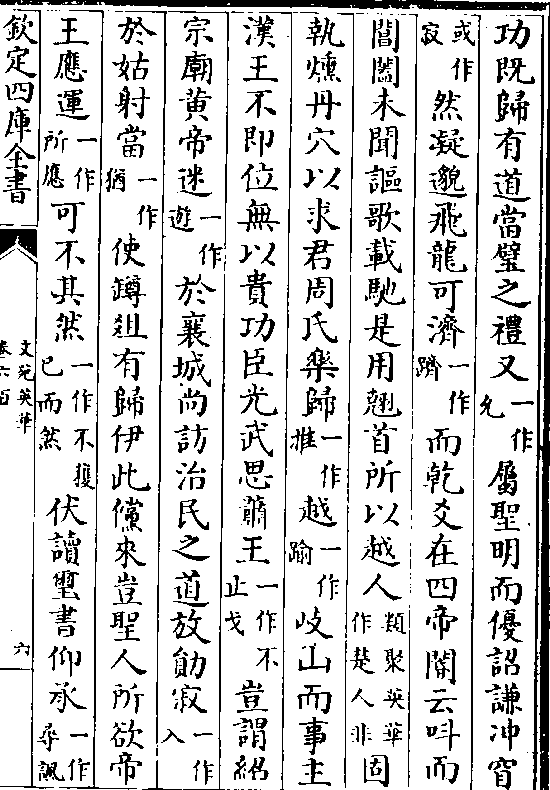 功既歸有道當璧之禮又一作允屬聖明而優詔謙冲窅
或作寂然凝邈飛龍可濟一作躋而乾爻在四帝閽云呌而
閶闔未聞謳歌載馳是用翹首所以越人類聚英華作楚人非固
執燻丹穴以求君周氏樂歸一作推越一作踰岐山而事主
漢王不即位無以貴功臣光武思蕭王一作不止戈豈謂紹
宗廟黄帝迷一作遊於襄城尚訪治民之道放勛寂一作入
於姑射當一作猶使罇俎有歸伊此儻來豈聖人所欲帝
王應運一作所應可不其然一作不獲已而然伏讀璽書仰承一作尋諷
欽定四庫全書
文苑英華
卷六百
六